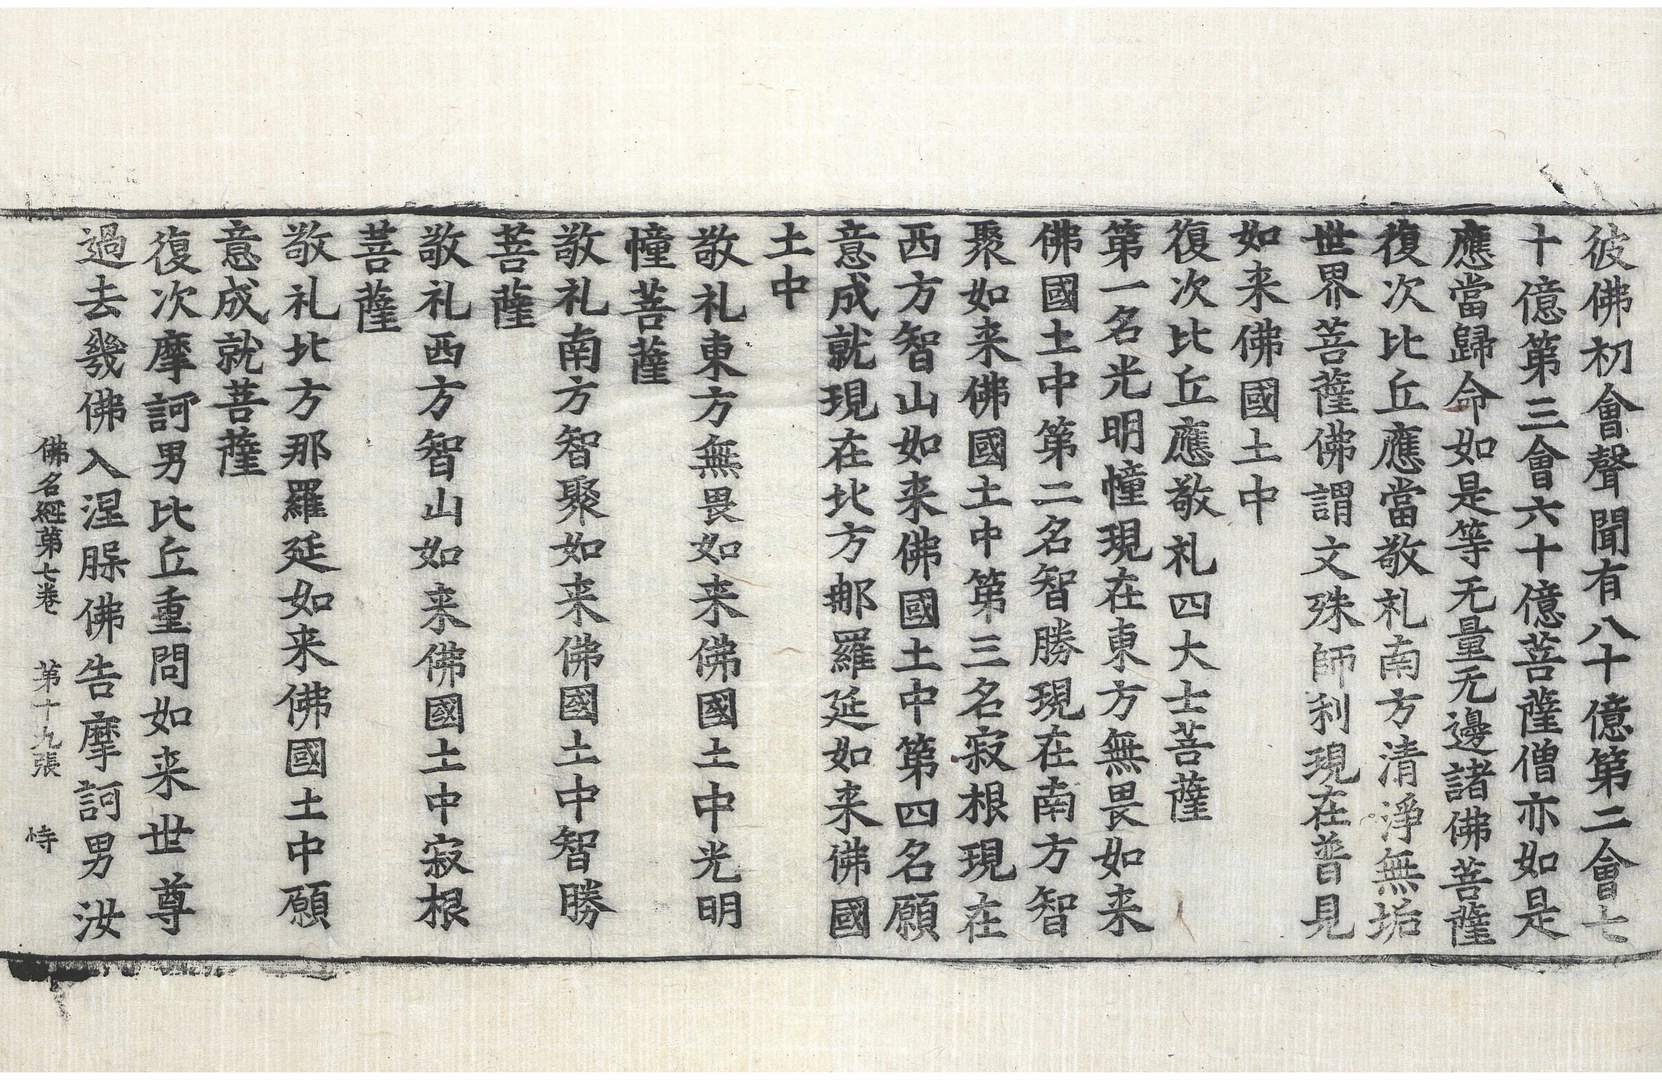 彼佛初會聲聞有八十億第二會七
十億第三會六十億菩薩僧亦如是
應當歸命如是等无量无邊諸佛菩薩
復次比丘應當敬礼南方清淨無垢
世界菩薩佛謂文殊師利現在普見
如来佛國土中
復次比丘應敬礼四大士菩薩
第一名光明幢現在東方無畏如来
佛國土中第二名智勝現在南方智
聚如来佛國土中第三名寂根現在
西方智山如来佛國土中第四名願
意成就現在北方那羅延如来佛國
土中
敬礼東方無畏如来佛國土中光明
幢菩薩
敬礼南方智聚如来佛國土中智勝
菩薩
敬礼西方智山如来佛國土中寂根
菩薩
敬礼北方那羅延如来佛國土中願
意成就菩薩
復次摩訶男比丘重問如来世尊
過去幾佛入涅槃佛告摩訶男汝
佛名経第七卷 第十九張 恃